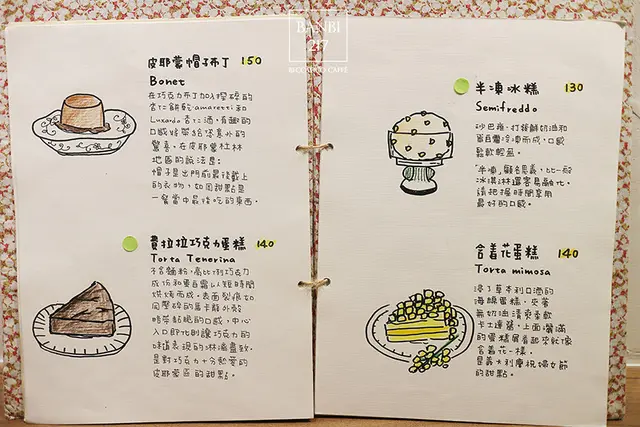 BANBI
217
RICCARDO CAFFÈ
皮耶蒙帽子布丁 150
Bonet
在巧克力布丁加入搾碎的
杏仁餅乾amaretti和
Luxardo杏仁酒，有趣的
口感好帶給堡意外的
驚喜，在皮耶蒙杜林
地區的說法是：
帽子是出門前最後戴上
的衣物，如同甜點是
一餐當中最後吃的東西。
費拉拉巧克力蛋糕 140
Torta Tenerina
不含麵粉，高比例巧克力
成份和蛋白霜以短時間
烘烤而成。表面裂很如
同壓碎的馬卡龍外殼
略帶黏脆的口感，中心
入口即化則讓巧克力的
味道表現的淋漓盡致，
是對巧克力十分熱愛的
皮耶蒙區的甜點。
半凍冰糕 130
Semifreddo
沙巴雍、打發鮮奶油和
蛋白霜冷凍而成，口感
鬆軟輕盈。
「半凍」顧名思義，比一般
冰淇淋還容易融化，
請把握時間享用
最好的口感。
含羞花蛋糕 140
Torta mimosa
浸了草本利口酒的
海綿蛋糕，夾著
無奶油清爽柔軟
卡士達醬，上面灑滿
的蛋糕屑看起來就像
含羞花一樣，
是義大利慶祝婦女節
的甜點。